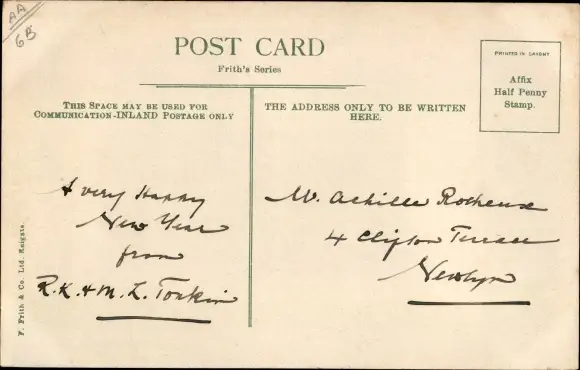 AA
6B
POST CARD
Frith's Series
PRINTED IN SAXONY
Affix
Half Penny
Stamp.
THIS SPACE MAY BE USED FOR
COMMUNICATION-INLAND POSTAGE ONLY
THE ADDRESS ONLY TO BE WRITTEN
HERE.
A very Happy
New Year
from
R.K. & M. L. Tonkin
M. Achille
4 Clifton Terrace
Newlyn
F. Frith & Co. Ltd. Reigate.